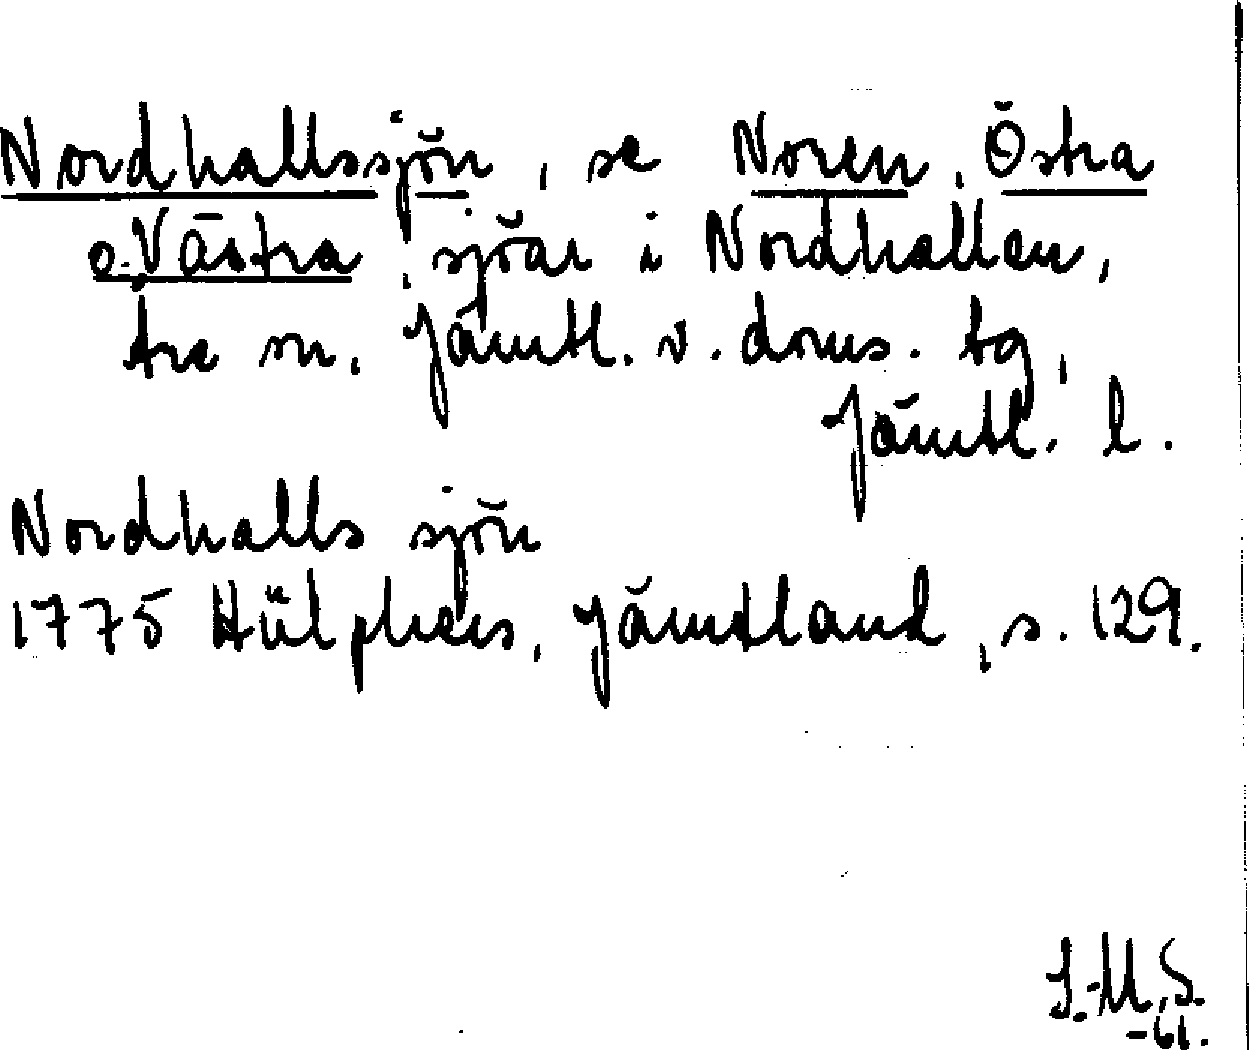 Nordhallssjön, se Noren, Östra
o. Västra, sjöar i Nordhallen,
Åre sn. Jämtl. v. doms. tg,
Jämtl. l.
Nordhalls sjön
1775 Hülphers, Jämdtland, s. 129.
I.-M.S.
-61.